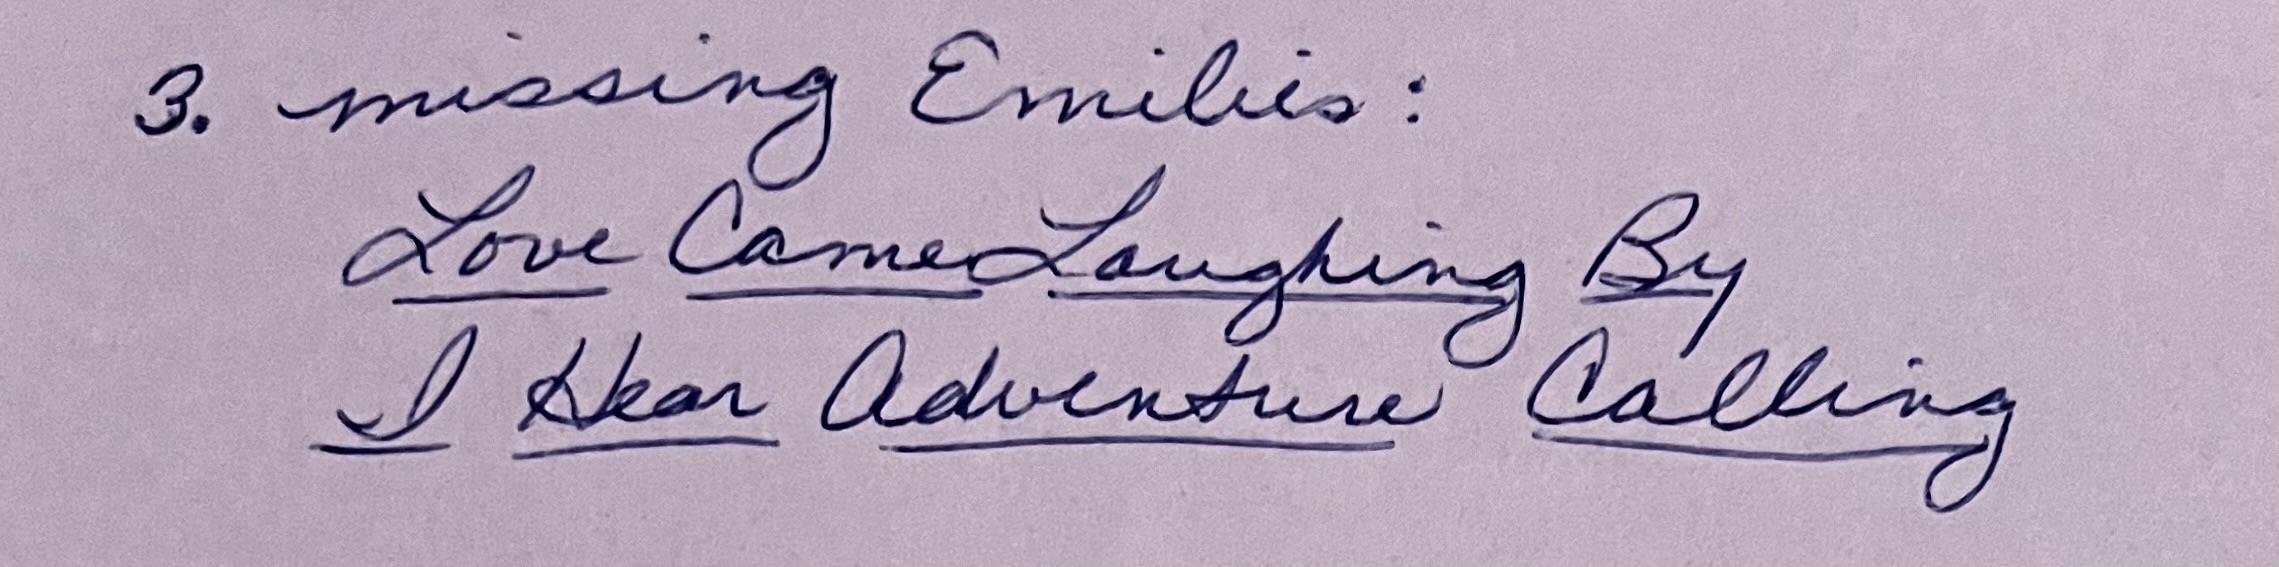 3. missing Emilies:
Love Came Laughing By
I Hear Adventure Calling